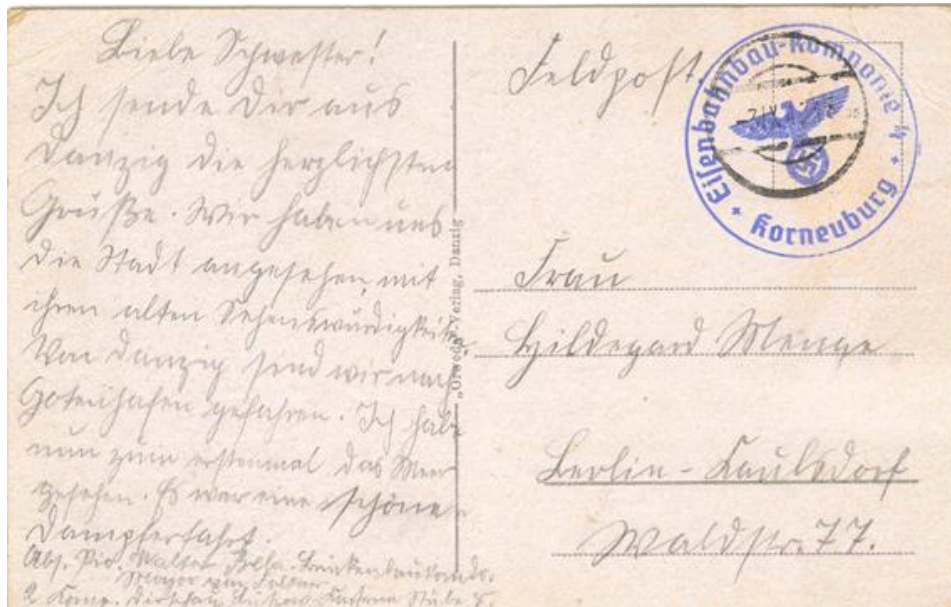 Liebe Schwester!
Ich sende Dir aus
Danzig die herzlichsten
Grüße. Wir haben uns
die Stadt angesehen, mit
ihren alten Sehenswürdigkeiten.
Von Danzig sind wir nach
Gotenhafen gefahren. Ich habe
nun zum erstenmal das Meer
gesehen. Es war eine schöne
Dampferfahrt.
Abs. Pio. Walter
2 Komp. Dirschau Stube 8.
Verlag, Danzig
Feldpost.
Eisenbahnbau-Kompanie
Korneuburg
Frau
Hildegard Menge
Berlin-Kaulsdorf
Waldstr. 77.